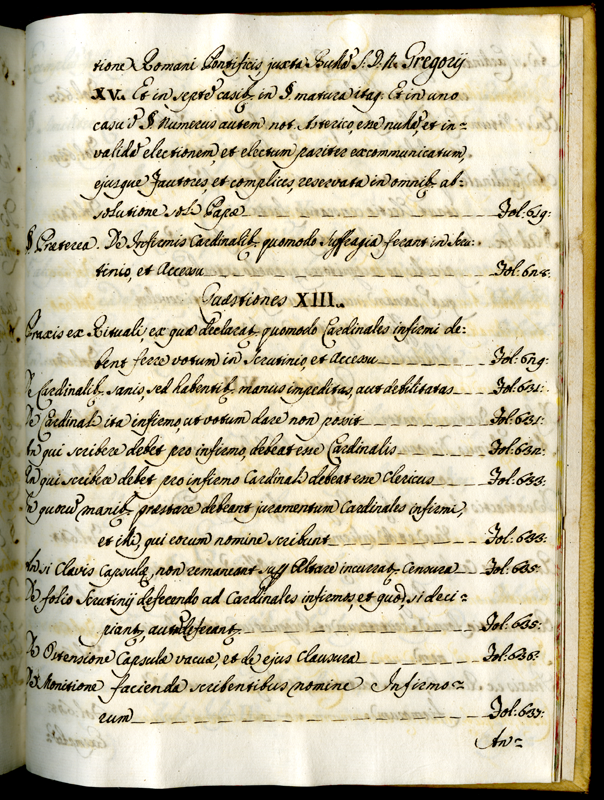 tione Romani Pontificis, juxta Bullā S. D. N. Gregorij
XV. Et in septē casib₉ in §. matura itaq₉ Et in uno
casu ī § Numerus autem not. Asterico, esse nullā, et in=
validā electionem, et electum pariter excommunicatum,
ejusque fautores, et complices, reservata in omnib₉ ab=
solutione soli Papæ Fol: 619:
§ Præterea. De Infirmis Cardinalib₉ quomodo suffragia ferant in Scru:
tinio, et Accessu Fol: 628:
Quæstiones XIII.
Praxis ex Rituali, ex qua declarat₉ quomodo Cardinales infirmi de:
bent ferre votum in Scrutinio, et Accessu Fol: 629:
De Cardinalib₉ sanis, sed habentib₉ manus impeditas, aut debilitatas Fol: 631:
De Cardinali ita infirmo, ut votum dare non possit Fol: 631:
An qui scribere debet pro infirmo, debeat esse Cardinalis Fol: 632:
An qui scribere debet pro infirmo Cardinali debeat esse Clericus Fol: 633:
In quorū manib₉ præstare debeant juramentum Cardinales infirmi,
et illi, qui eorum nomine scribunt Fol: 633:
An si Clavis Capsulæ, non remaneant supr Altare incurrat₉ Censura Fol: 635:
De folio Scrutinij deferendo ad Cardinales infirmos, et quod, si deci=
piant, aut deferant₉ Fol: 635:
De Ostensione Capsulæ vacuæ, et de ejus Clausura Fol: 636:
De Monitione facienda scribentibus nomine Infirmo=
rum Fol: 637:
An=